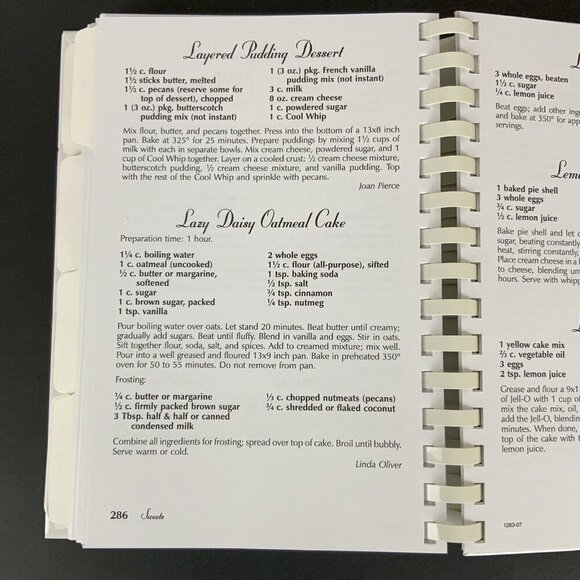 Layered Pudding Dessert
1½ c. flour
1½ sticks butter, melted
1½ c. pecans (reserve some for
top of dessert), chopped
1 (3 oz.) pkg. butterscotch
pudding mix (not instant)
1 (3 oz.) pkg. French vanilla
pudding mix (not instant)
3 c. milk
8 oz. cream cheese
1 c. powdered sugar
1 c. Cool Whip
Mix flour, butter, and pecans together. Press into the bottom of a 13x8 inch
pan. Bake at 325° for 25 minutes. Prepare puddings by mixing 1½ cups of
milk with each in separate bowls. Mix cream cheese, powdered sugar, and 1
cup of Cool Whip together. Layer on a cooled crust: ½ cream cheese mixture,
butterscotch pudding, ½ cream cheese mixture, and vanilla pudding. Top
with the rest of the Cool Whip and sprinkle with pecans.
Joan Pierce
Lazy Daisy Oatmeal Cake
Preparation time: 1 hour.
1¼ c. boiling water
1 c. oatmeal (uncooked)
½ c. butter or margarine,
softened
1 c. sugar
1 c. brown sugar, packed
1 tsp. vanilla
2 whole eggs
1½ c. flour (all-purpose), sifted
1 tsp. baking soda
½ tsp. salt
¾ tsp. cinnamon
¼ tsp. nutmeg
Pour boiling water over oats. Let stand 20 minutes. Beat butter until creamy;
gradually add sugars. Beat until fluffy. Blend in vanilla and eggs. Stir in oats.
Sift together flour, soda, salt, and spices. Add to creamed mixture; mix well.
Pour into a well greased and floured 13x9 inch pan. Bake in preheated 350°
oven for 50 to 55 minutes. Do not remove from pan.
Frosting:
¼ c. butter or margarine
½ c. firmly packed brown sugar
3 Tbsp. half & half or canned
condensed milk
⅓ c. chopped nutmeats (pecans)
¾ c. shredded or flaked coconut
Combine all ingredients for frosting; spread over top of cake. Broil until bubbly.
Serve warm or cold.
Linda Oliver
286 Sweets
3 whole eggs, beaten
1½ c. sugar
¼ c. lemon juice
Beat eggs; add other ing
and bake at 350° for app
servings.
Lem
1 baked pie shell
3 whole eggs
¾ c. sugar
½ c. lemon juice
Bake pie shell and let c
sugar, beating constantly
heat, stirring constantly,
Place cream cheese in a l
to cheese, blending unti
hours. Serve with whipp
1 yellow cake mix
⅔ c. vegetable oil
3 eggs
2 tsp. lemon juice
Grease and flour a 9x1
of Jell-O with 1 cup of
mix the cake mix, oil,
add the Jell-O, blending
minutes. When done,
top of the cake with t
lemon juice.
1263-07